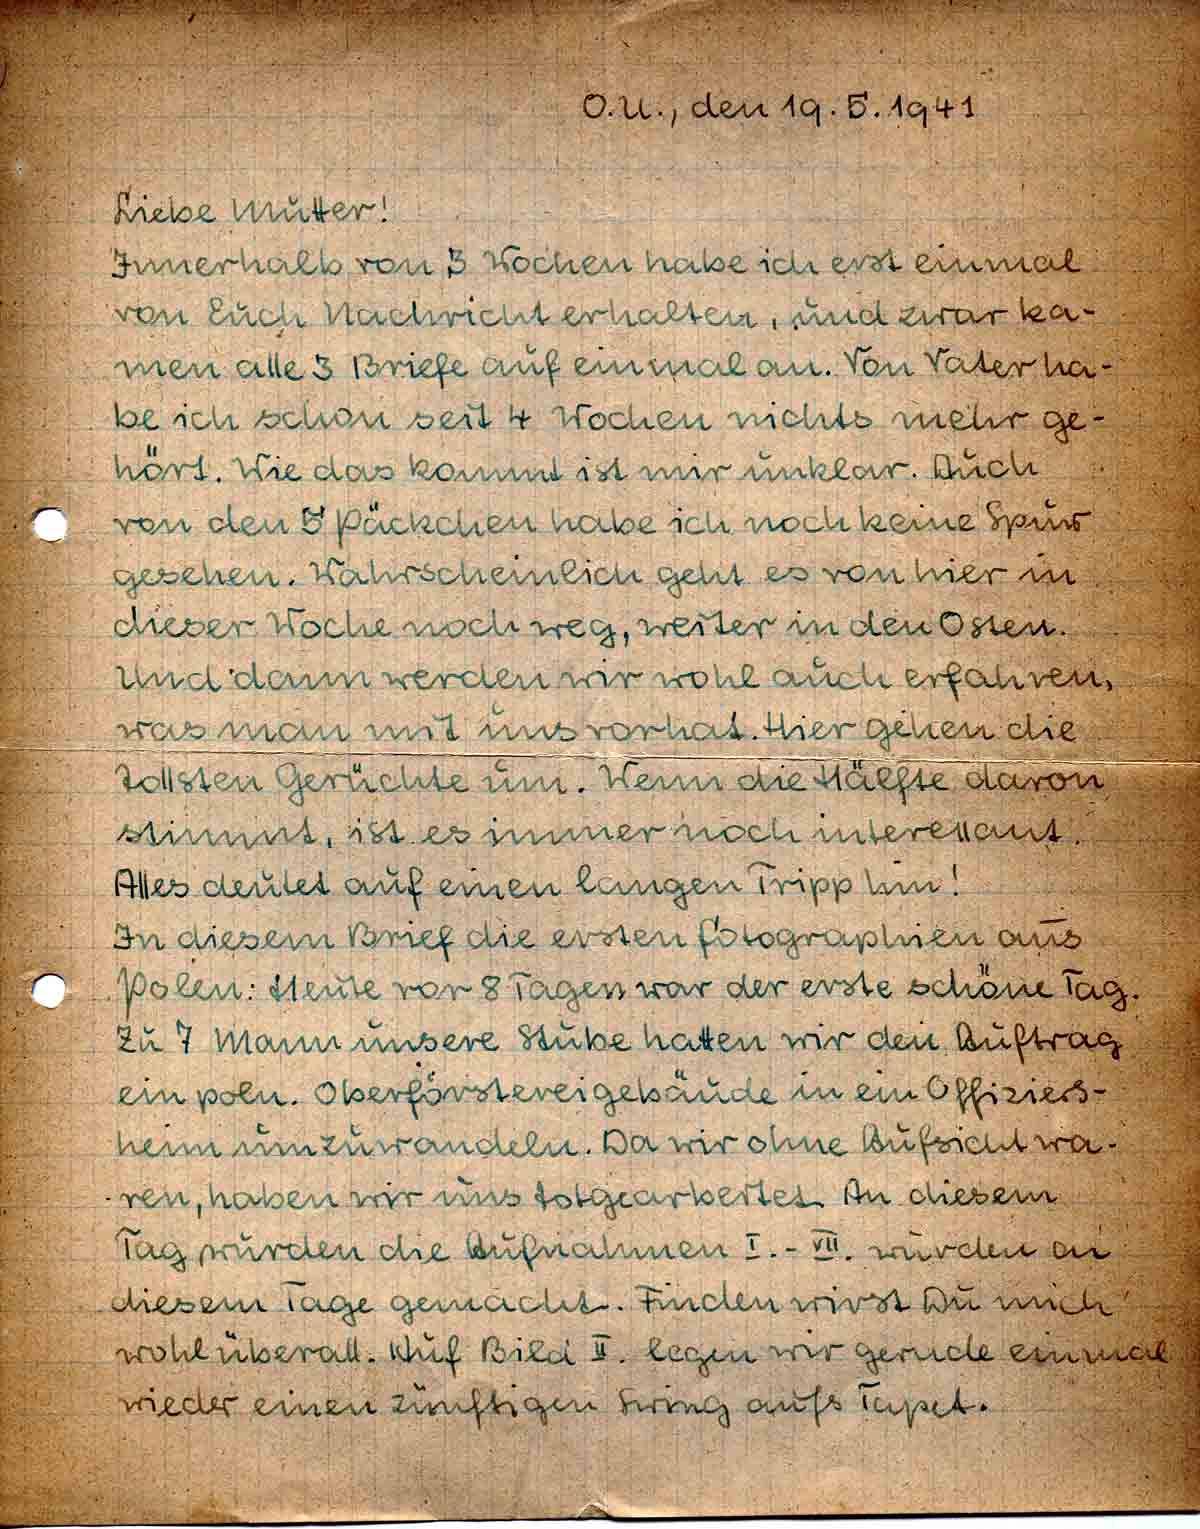 O.U., den 19.5.1941
Liebe Mutter!
Innerhalb von 3 Wochen habe ich erst einmal
von Euch Nachricht erhalten, und zwar ka-
men alle 3 Briefe auf einmal an. Von Vater ha-
be ich schon seit 4 Wochen nichts mehr ge-
hört. Wie das kommt ist mir unklar. Auch
von den 5 Päckchen habe ich noch keine Spur
gesehen. Wahrscheinlich geht es von hier in
dieser Woche noch weg, weiter in den Osten.
Und dann werden wir wohl auch erfahren,
was man mit uns vorhat. Hier gehen die
tollsten Gerüchte um. Wenn die Hälfte davon
stimmt, ist es immer noch interessant.
Alles deutet auf einen langen Tripp hin!
In diesem Brief die ersten Fotographien aus
Polen: Heute vor 8 Tagen war der erste schöne Tag.
Zu 7 Mann unsere Stube hatten wir den Auftrag
ein poln. Oberförstereigebäude in ein Offiziers-
heim umzuwandeln. Da wir ohne Aufsicht wa-
ren, haben wir uns totgearbeitet. An diesem
Tag wurden die Aufnahmen I. - VII. wurden an
diesem Tage gemacht. Finden wirst Du mich
wohl überall. Auf Bild II. legen wir gerade einmal
wieder einen zünftigen Swing aufs Tapet.